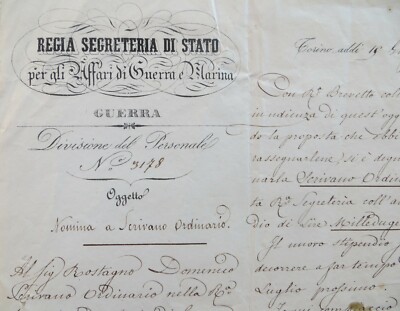 REGIA SEGRETERIA DI STATO
per gli Affari di Guerra e Marina
GUERRA
Divisione del Personale
N.º 3178
Oggetto
Nomina a Scrivano Ordinario.
Al Sig. Rostagno Domenico
Scrivano Ordinario nella R.a
Torino addì 10
Con R.º Brevetto
in udienza di quest'
la proposta che
rassegnarlene, si è
Scrivano
R.a Segreteria coll'
di Lire
Il nuovo stipendio
decorrere a far tempo
Luglio prossimo.